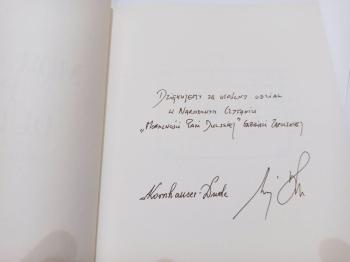 Dziękujemy za wspólny udział
w Narodowym Czytaniu
„Moralności Pani Dulskiej” Gabrieli Zapolskiej
Kornhauser-Duda